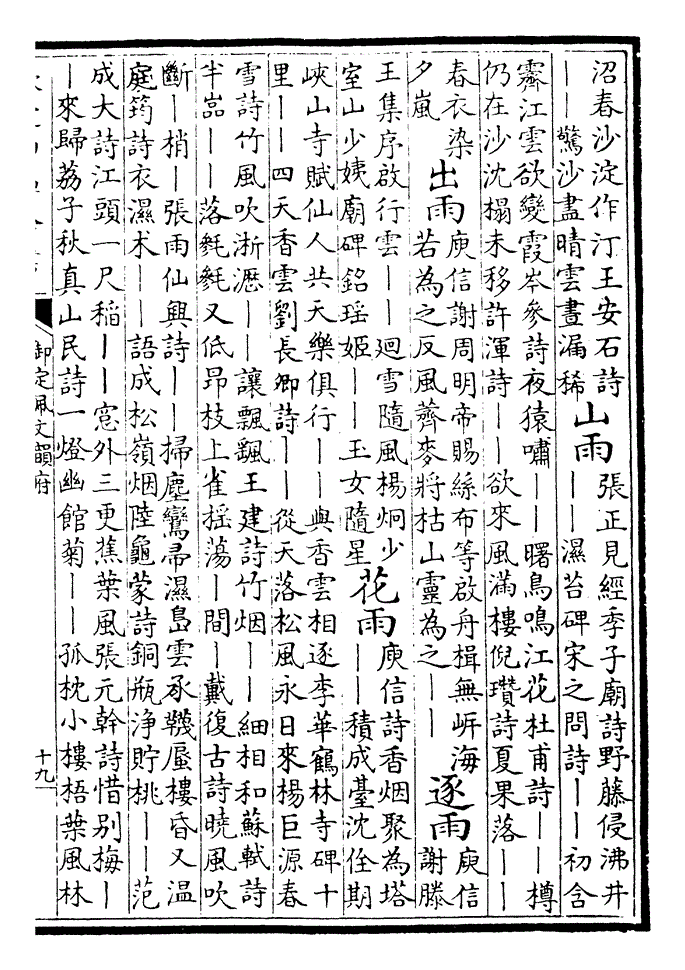 沼春沙淀作汀王安石詩
——驚沙盡晴雲晝漏稀
山雨
張正見經季子廟詩野藤侵沸井
——濕苔碑宋之問詩——初含
霽江雲欲變霞岑參詩夜猿嘯——曙鳥鳴江花杜甫詩——樽
仍在沙沈榻未移許渾詩——欲來風滿樓倪瓚詩夏果落——
春衣染
夕嵐
出雨
庾信謝周明帝賜絲布等啟舟楫無岍海
若為之反風薺麥將枯山靈為之——
逐雨
庾信
謝滕
王集序啟行雲——廻雪隨風楊炯少
室山少姨廟碑銘瑤姬——玉女隨星
花雨
庾信詩香烟聚為塔
——積成臺沈佺期
峽山寺賦仙人共天樂俱行——與香雲相逐李華鶴林寺碑十
里——四天香雲劉長卿詩——從天落松風永日來楊巨源春
雪詩竹風吹淅瀝——讓飄颻王建詩竹烟——細相和蘇軾詩
半嵓——落毿毿又低昻枝上雀揺蕩—間—戴復古詩曉風吹
斷—梢—張雨仙興詩——掃塵鸞帚濕島雲承韈蜃樓昏又温
庭筠詩衣濕术——語成松嶺烟陸龜蒙詩銅瓶浄貯桃——范
成大詩江頭一尺稻——窓外三更蕉葉風張元幹詩惜别梅—
—來歸荔子秋真山民詩一燈幽館菊——孤枕小樓梧葉風林
御定佩文韻府
十九